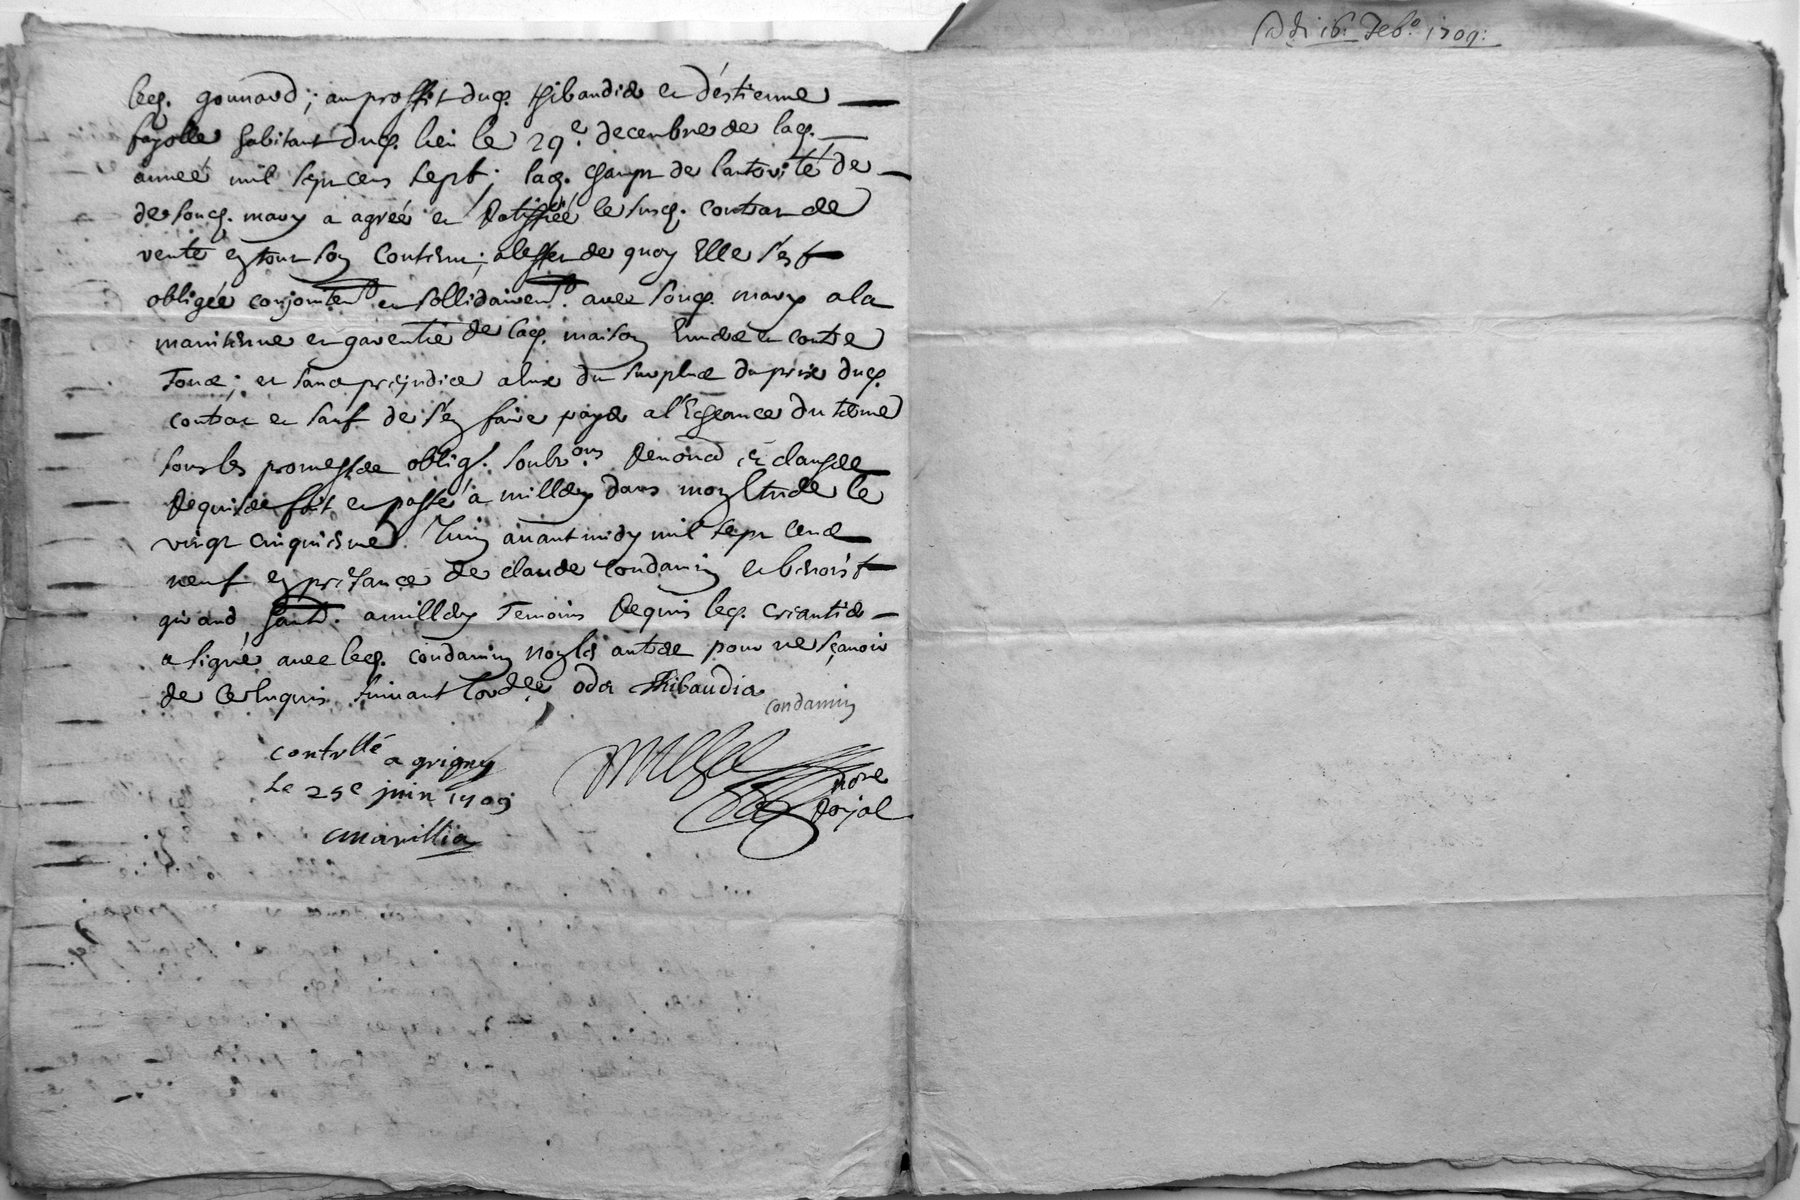 Addi 16: Feb.o 1709:
led. gonnard; au proffit dud. thibaudier et d'éstienne
fayolle habitant dud. lieu le 29.e decembre de lad.
année mil sept cens sept; lad. de lautorité de
de soud. mary a agréé et Ratiffiée le susd. contrat de
vente en tout son contenu; a leffet de quoy Elle s'est
obligée conjointem.t et sollidairem.t avec soud. mary a la
maintenue et garentie de lad. maison Envers et contre
Tous; et sans prejudice a luy du surplus du prix dud.
contrat et sauf de s'en faire payer a l'Echeance du terme
sous les promesses oblig. Renond et clauses
Requises fait et passé a millery dans mon Etude le
vingt cinquieme Juin avant midy mil sept cens
neuf en presance de claude Condamin et benoist
girand, habt. a millery Temoins Requis led.
a signé avec led. condamin non les autres pour ne sçavoir
de ce Enquis suivant lord.ce oder thibaudier
condamin
contrllé a grigny
Le 25e juin 1709
Nore
Royal